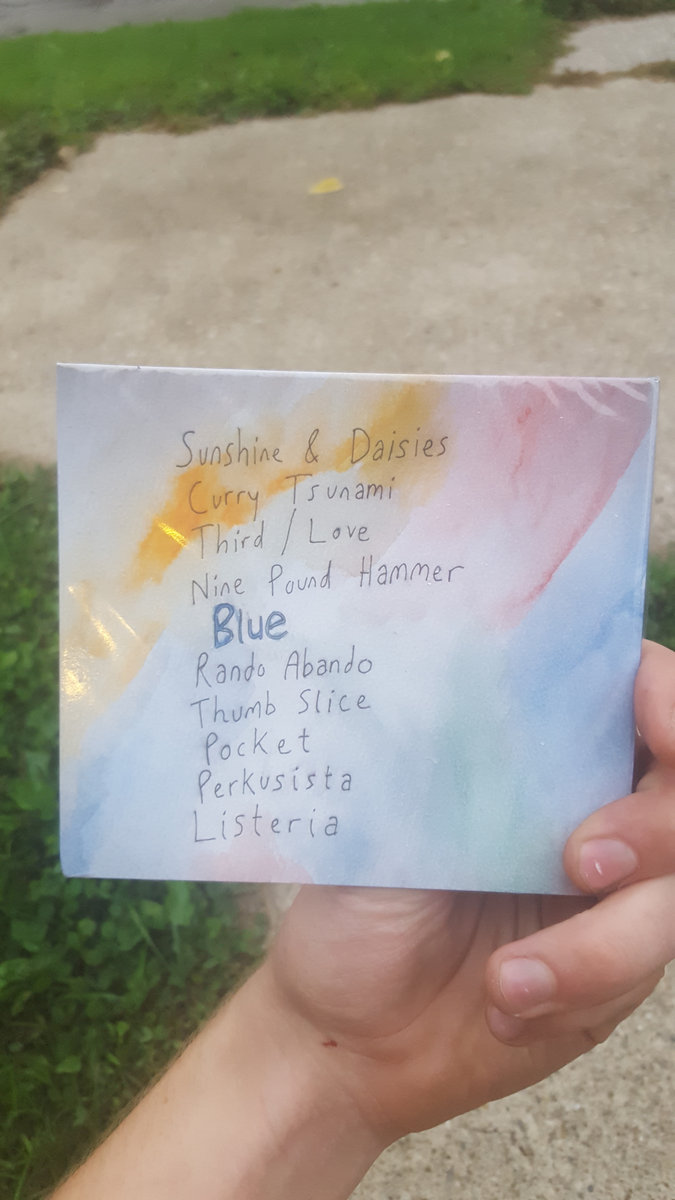 Sunshine & Daisies
Curry Tsunami
Third / Love
Nine Pound Hammer
Blue
Rando Abando
Thumb Slice
Pocket
Perkusista
Listeria